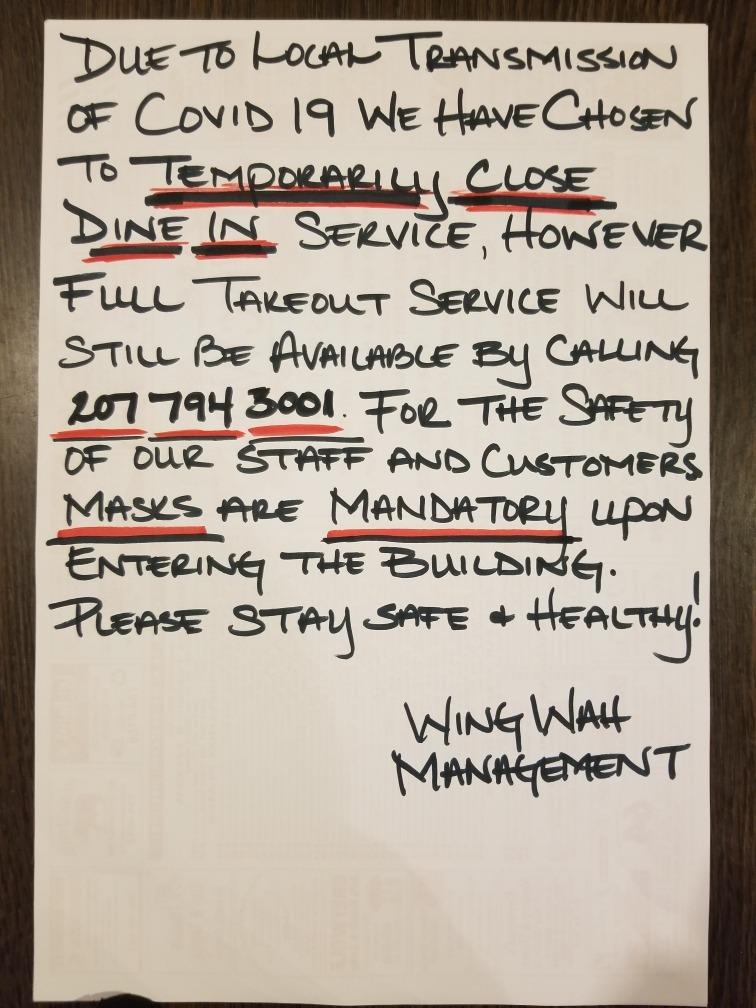 Due to Local Transmission
of Covid 19 We Have Chosen
to Temporarily Close
Dine In Service, However
Full Takeout Service Will
Still Be Available By Calling
207 794 3001. For the Safety
of our Staff and Customers
Masks are Mandatory upon
Entering the Building.
Please Stay Safe & Healthy!
Wing Wah
Management